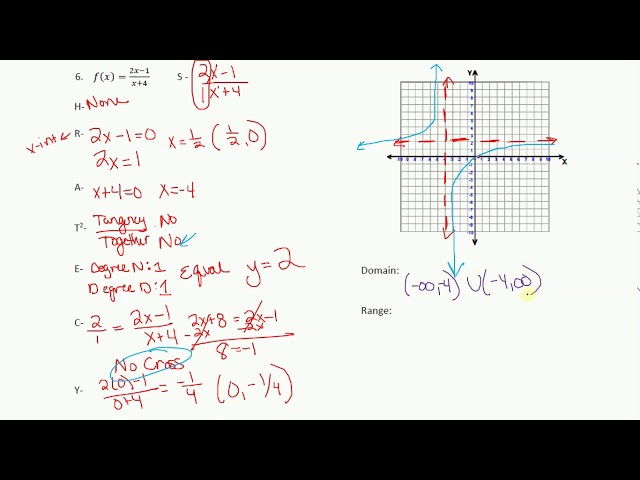 6. f(x) = 2x−1/x+4 S - 2x-1/1x+4
H- None
x-int R- 2x-1=0 x=1/2 (1/2, 0)
2x=1
A- x+4=0 x=-4
T²- Tangency No
Together No
E- Degree N:1 Equal y=2
Degree D:1
C- 2/1 = 2x-1/x+4 2x+8 = 2x-1
-2x -2x
8=-1
No Cross
Y- 2(0)-1/0+4 = -1/4 (0, -1/4)
Y
X
Domain: (-∞,-4) U (-4,∞)
Range: